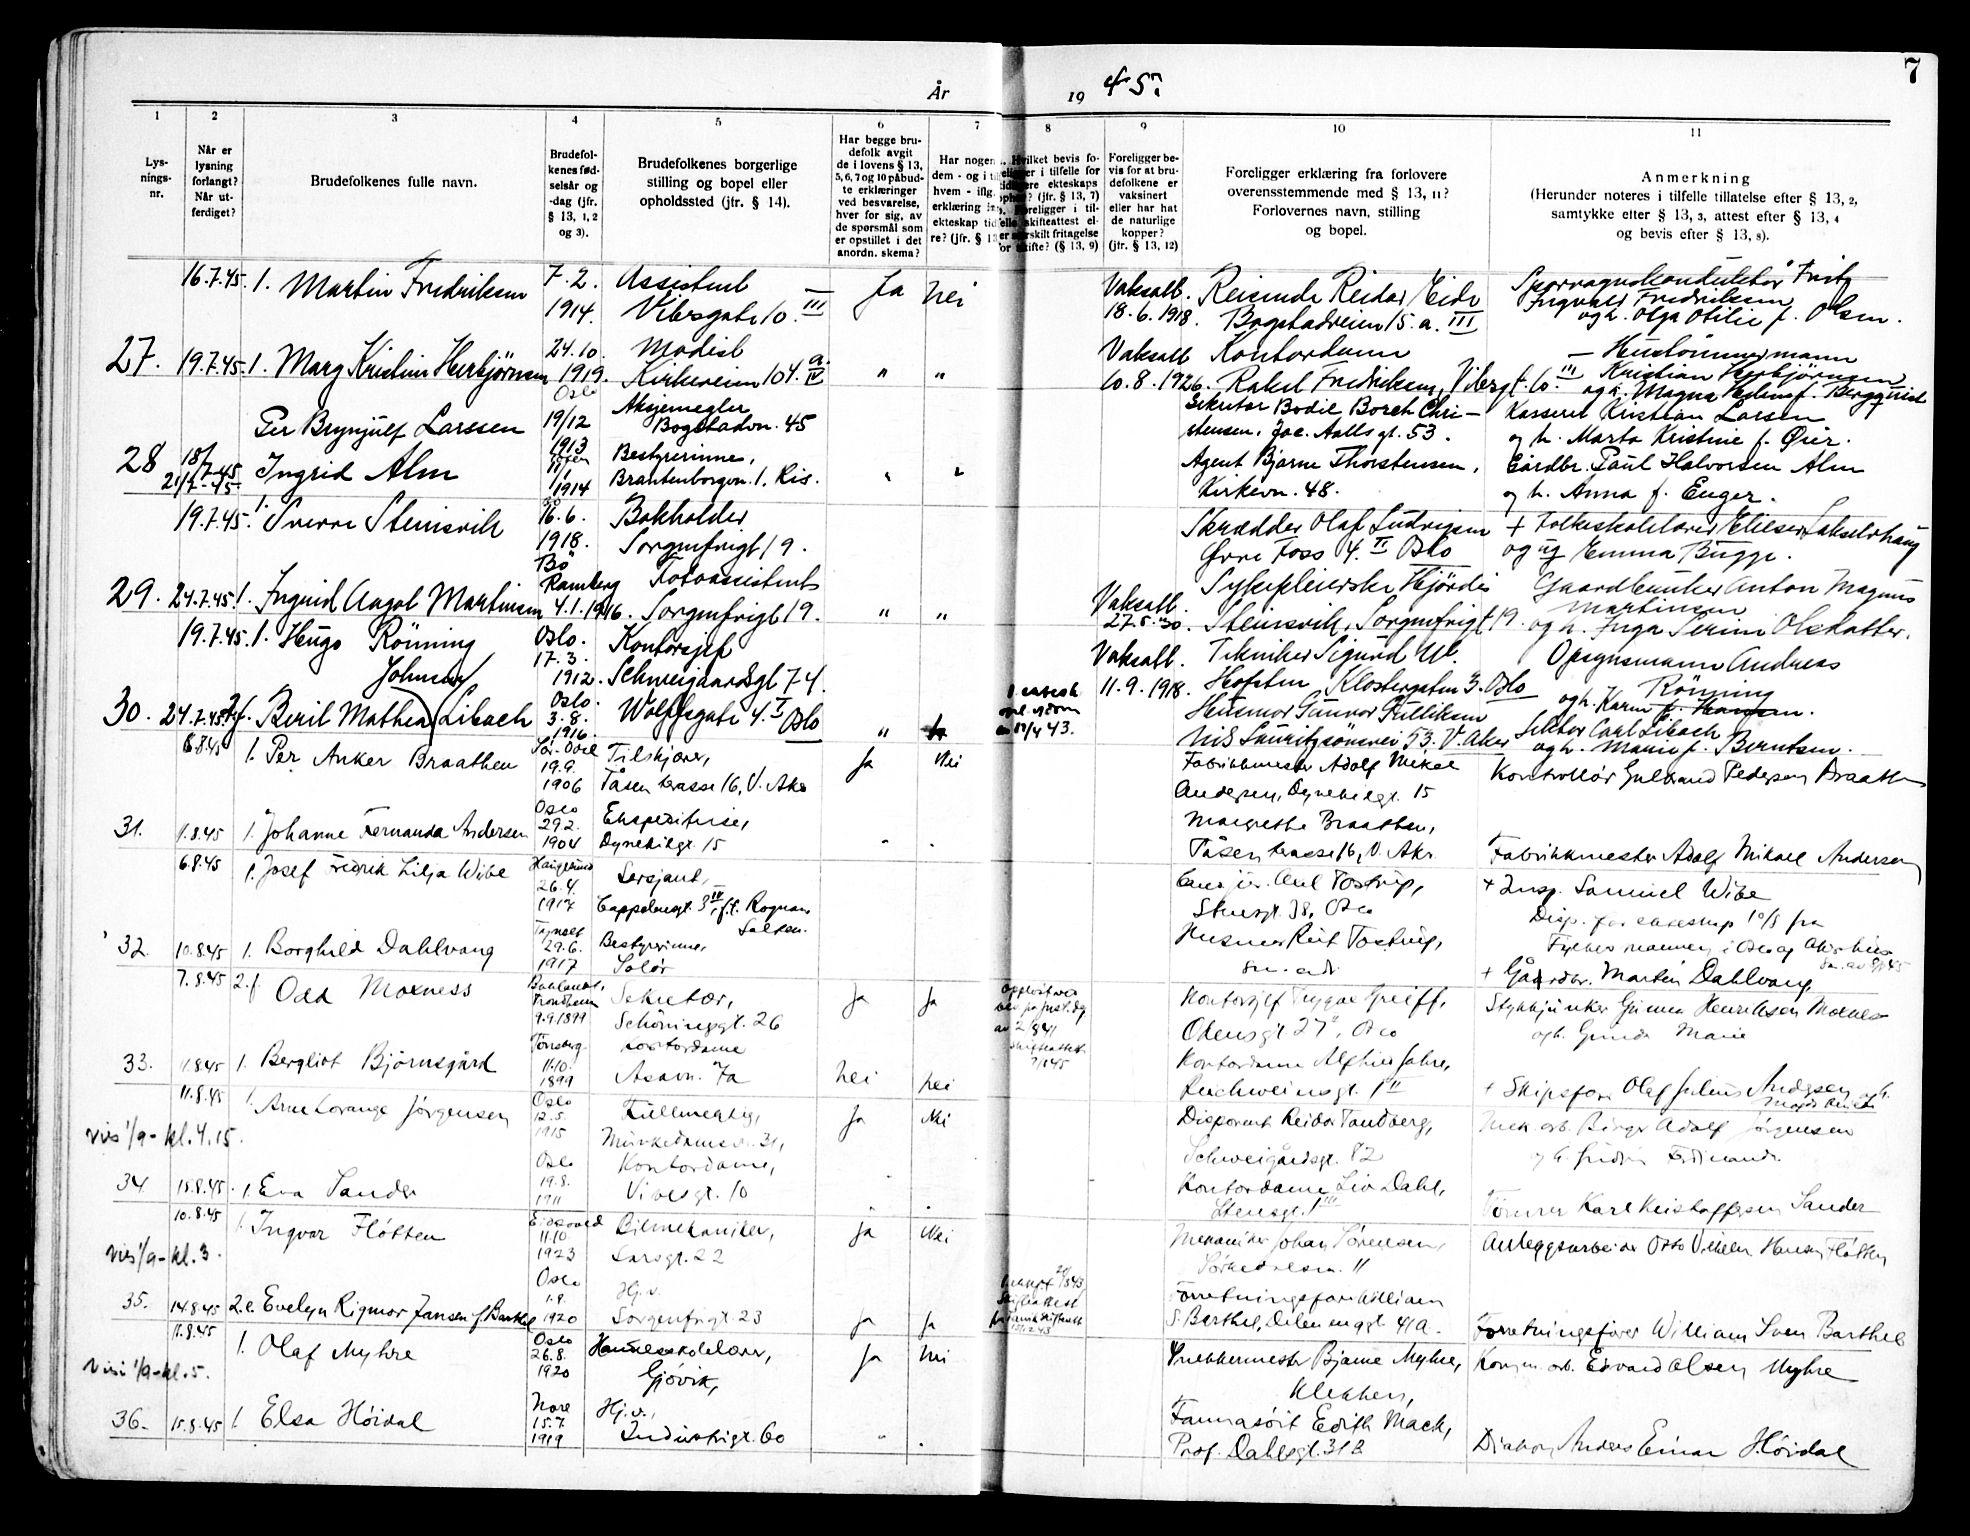 År 19 45. 7
1 2 3 4 5 6 7 8 9 10 11
Lys-
nings-
nr.
Når er
lysning
forlangt?
Når ut-
ferdiget?
Brudefolkenes fulle navn.
Brudefol-
kenes fød-
selsår og
-dag (jfr.
§ 13, 1, 2
og 3).
Brudefolkenes borgerlige
stilling og bopel eller
opholdssted (jfr. § 14).
Har begge bru-
defolk avgit
de i lovens § 13,
5, 6, 7 og 10 påbud-
te erklæringer
ved besvarelse,
hver for sig, av
de spørsmål som
er opstillet i det
anordn. skema?
Har nogen
dem - og i
hvem - iflg.
erklæring
ekteskap tid
re? (jfr. § 1
Hvilket bevis fo-
religger i tilfelle for
ekteskaps
(jfr. § 13, 7)
Foreligger i til-
skifteattest el-
særskilt fritagelse
for skifte? (§ 13, 9)
Foreligger be-
vis for at bru-
defolkene er
vaksinert
eller har hat
de naturlige
kopper?
(jfr. § 13, 12)
Foreligger erklæring fra forlovere
overensstemmende med § 13, 11?
Forlovernes navn, stilling
og bopel.
Anmerkning
(Herunder noteres i tilfelle tillatelse efter § 13, 2,
samtykke efter § 13, 3, attest efter § 13, 4
og bevis efter § 13, 8).
16.7.45. 1. Martin Fredriksen 7.2. Assistent Ja Nei Vaksatt. Reisende Reidar Eide Sporvognskonduktør Fritz
1914. Vibesgate 10. III 18.6.1918. Bogstadveien 15.a. III Ingvald Fredriksen
og h. Olga Otilie f. Olsen.
27. 19.7.45. 1. Mary Kristine Herbjørnsen 24.10. Modist " " Vaksatt Kontordame — Hustømmermann
1919. Kirkeveien 104.a. IV 10.8.1926. Rakel Fredriksen, Vibesgt. 10. III Kristian Herbjørnsen
Oslo og h. Magna f. Bergquist
Per Brynjulf Larssen 19/12 Aksjemegler Sekretær Bodil Borch Chri- Kasserer Kristian Larsen
1913 Bogstadvn. 45 stensen, Jac. Aallsgt. 53. og h. Marta Kristine f. Øier.
28 18/7.45 Ingrid Alm Bestyrerinne, " " Agent Bjarne Thorstensen, Gårdbr. Paul Halvorsen Alm
21/7-45 1914 Brantenborgvn. 1. Ris. Kirkevn. 48. og h. Anna f. Enger.
19.7.45. 1. Sverre Steinsvik 16.6. Bokholder Skrædder Olaf Ludvigsen + Folkeskolelærer
1918. Sorgenfrigt 19. Øvre Foss 4. II Oslo og Emma Bugge.
Bö
29. 24.7.45. 1. Ingrid Aagot Martinsen Ramberg Fotoassistent " " Vaksatt. Sykepleierske Hjördis Gaardbruker Anton Magnus
4.1.1916. Sorgenfrigt 19. 27.5.30. Steinsvik, Sorgenfrigt 19. Martinsen
og h. Inga Serine Olsdatter.
19.7.45. 1. Hugo Rönning Oslo. Kontorsjef Vaksatt. Tekniker Sigurd W. Opsynsmann Andreas
Johnsen 17.3. 1912. Schweigaardsgt 74. 11.9.1918. Hofsten, Klostergaten 3. Oslo Rönning
og h. Karen f. Hansen.
30. 24.7.45 2.f. Beril Mathea Libach Oslo. Wolffsgate 4. I Oslo " 43. Husmor Gunvor Fulliksen Carl Libach
3.8. 1916. Nils Lauritzsönsvei 53. V. Aker og h. Marie f. Berntsen.
8.8.45 1. Per Anker Braathen Tilskjærer, Ja Nei Fabrikkmester Adolf Mikal Kontrollör Gulbrand Pedersen Braathen
19.9. 1906 Tåsen terasse 16, V. Aker Andersen, Dynekilgt. 15
31. 1.8.45 1. Johanne Fernanda Andersen Oslo Ekspeditrise, " . Margrethe Braathen,
29.2. 1904 Dynekilgt. 15 Tåsen terasse 16, V. Aker Fabrikkmester Adolf Mikael Andersen
6.8.45 1. Josef Fredrik Lilja Wibe Sersjant, Tostrup, + Insp. Samuel Wibe
26.4. 1917 Cappelensgt. 3 IV, f.t. Rognan Stensgt. 38, Oslo Disp. for ekteskap 10/8 fra
Salten. Fylkesmannen i Oslo og Akershus
32. 10.8.45 1. Borghild Dahlvang Tynset Bestyrerinne, Husmor Rut Tostrup,
29.6. 1917 Solør + Gårdbr. Martin Dahlvang
7.8.45 2.f. Odd Moxness Trondheim Sekretær, Ja Ja Kontorsjef Trygve Greiff, Henriksen Moxness
9.9.1899 Schöningsgt. 26 Odensgt 27, Oslo og h. Marie
33. 1.8.45 1. Bergliot Bjørnsgård Tönsberg kontordame Nei Nei Kontordame Jahre,
11.10. 1899 Asavn. 7a Reichweinsgt. 1 II + Skipsför. Olaf Julius Andersen
11.8.45 1. Arne Lorange Jørgensen Oslo Fullmektig, Ja Nei Disponent Reidar Tandberg, Mek. arb. Birger Adolf Jørgensen
vies 1/9-kl. 4.15. 12.5. 1915 Munkedamsv. 31, Schweigårdsgt. 82
34 15.8.45. 1. Eva Sander Oslo Kontordame, . . Kontordame Liv Dahl,
19.8. 1911 Vibesgt. 10 Stensgt. 1 III Karl Kristoffersen Sander
10.8.45 1. Ingvar Fløtten Eidsvold Bilmekaniker, Ja Nei Mekaniker Johan Sørensen, Anleggsarbeider Otto Vilhelm Hansen Fløtten
vies 1/9-kl. 3. 11.10 1923 Larsgt. 22 Sørkedalsvn. 11
35. 14.8.45 2.e. Evelyn Rigmor Jansen f. Barthel Oslo Hj.v. Ja Ja Forretningsfører William
1.8. 1920 Sorgenfrigt. 23 S. Barthel, Delenenggt 41A. Forretningsfører William Sven Barthel
11.8.45 1. Olaf Myhre Oslo Ja Nei Snekkermester Bjarne Myhre, Komm. arb. Edvard Olsen Myhre
vies 1/9-kl. 5. 26.8. 1920 Gjøvik, Klekken,
36. 15.8.45 1. Elsa Höidal Nore Hj.v., " . Farmasöit Edith Mack,
15.7. 1919 Industrigt. 60 Prof. Dahlsgt. 31B Diakon Anders Einar Höidal